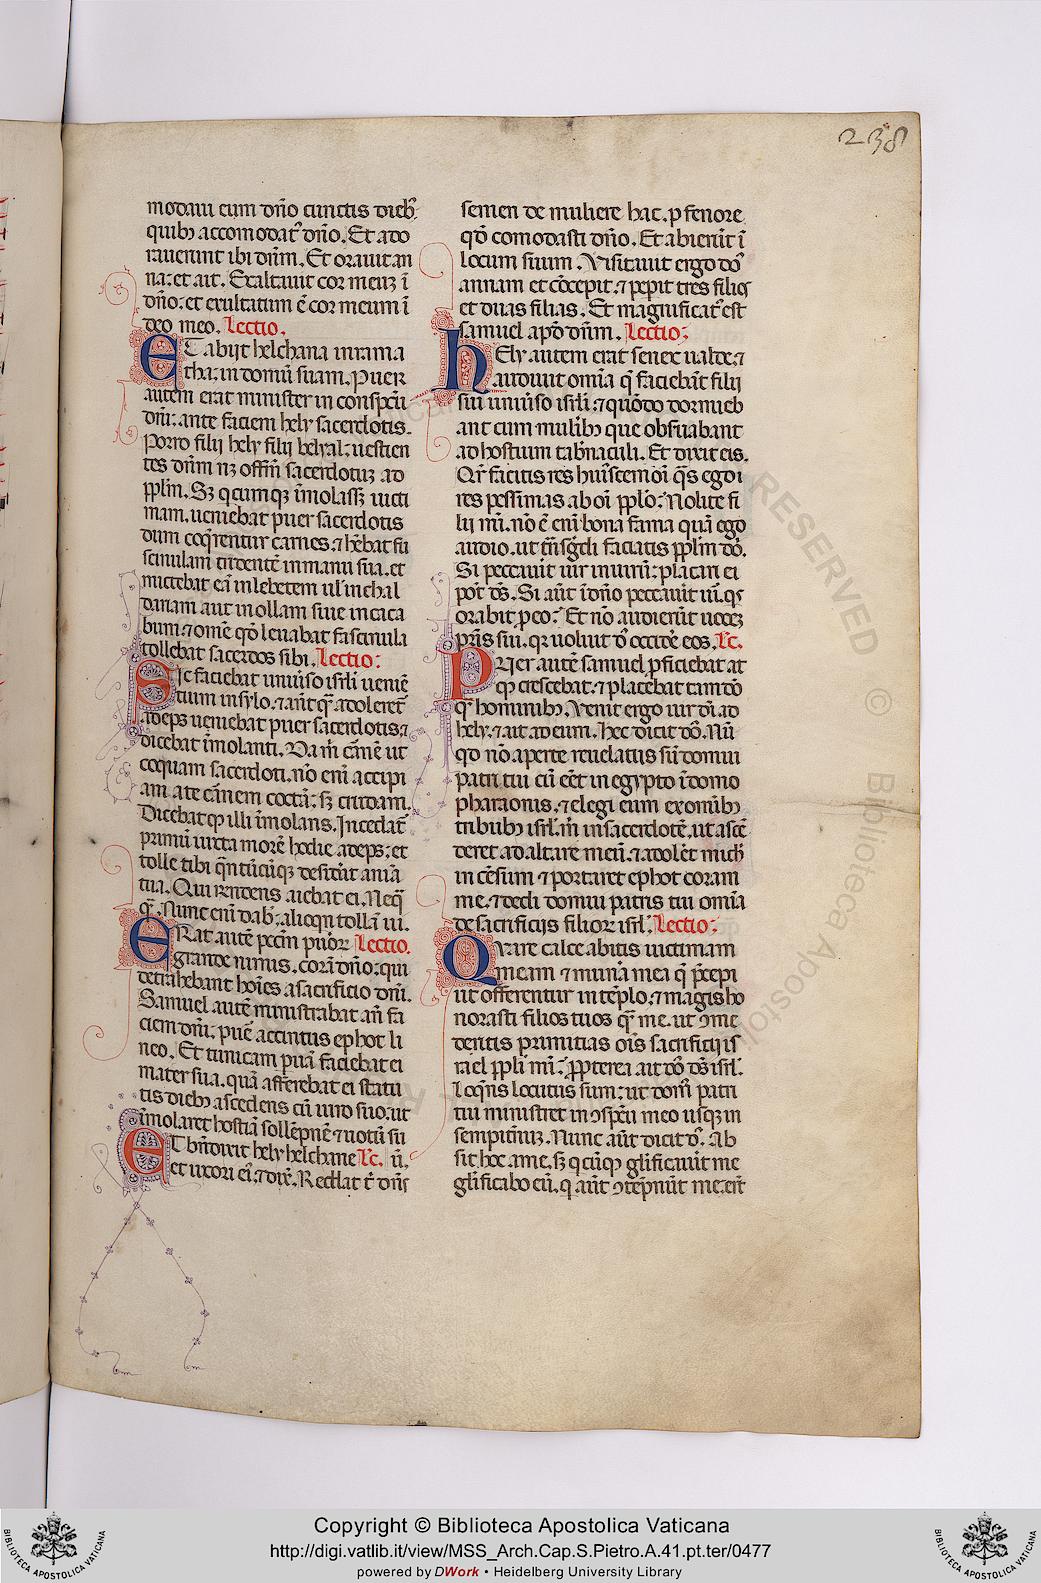 238
modaui cum dño cunctis dieb᷒
quibꝫ accomodat᷒ dño. Et ado
rauerunt ibi dñm. Et orauit an
na: et ait. Exaltauit cor meuꝫ ĩ
dño: et exultatum ẽ cor meum ĩ
deo meo. Lectio.
ET abijt helchana in rama
tha: in domũ suam. Puer
autem erat minister in conspcũ
dñi: ante faciem hely sacerdotis.
Porro filij hely filij belyal: nescien
tes dñm nꝫ offm̃ sacerdotuꝫ ad
pplm̃. Sꝫ qcumqꝫ ĩmolassꝫ uicti
mam. ueniebat puer sacerdotis
dum coq̃rentur carnes. ⁊ hẽbat fu
scinulam tⁱdentẽ in manu sua. et
mictebat eã in lebetem ul᷒ in chal
dariam aut in ollam siue in caca
bum. ⁊ omẽ qđ leuabat fuscinula
tollebat sacerdos sibi. Lectio:
SIc faciebat uniũso isrl̃i ueniẽ
tium in sylo. ⁊ añt q᷒ adoleret᷒
adeps ueniebat puer sacerdotis. ⁊
dicebat ĩmolanti. Da m̃ cãnẽ ut
coquam sacerdoti. nõ enĩ accipi
am a te cãnem coctã: sꝫ crudam.
Dicebatqꝫ illi ĩmolans. Incedat᷒
primũ iuxta morẽ hodie adeps: et
tolle tibi q̃ntũcũqꝫ desid᷒at anĩa
tua. Qui rñdens aiebat ei. Neq̃
q᷒. Nunc enĩ dab᷒: alioqn tollã ui.
ERat autẽ pccm̃ puoꝝ Lectio.
grande nimis. corã dño: qui
detrahebant hoĩes a sacrificio dñi.
Samuel autẽ ministrabat añ fa
ciem dñi: puẽ accintus ephot li
neo. Et tunicam puã faciebat ei
mater sua. quã afferebat ei statu
tis diebꝫ ascẽdens cũ uiro suo: ut
ĩmolaret hostiã sollẽpnẽ ⁊ uotũ su
ET bñdixit hely helchane Lc. ũ.
et uxori ei᷒. ⁊ dix̃. Reddat t̃ dñs
semen de muliere hac. ꝓ fenore
qđ comodasti dño. Et abierũt ĩ
locum suum. Visitauit ergo dõ᷒
annam et cõcepit. ⁊ peꝑit tres filios
et duas filias. Et magnificat᷒ est
samuel apđ dñm. Lectio:
hEly autem erat senex ualde. ⁊
audiuit omĩa q̃ faciebãt filij
sui uniũso isrl̃i: ⁊ quõdo dormieb
ant cum mulĩbꝫ que obs̃uabant
ad hostium tab̃naculi. Et dixit eis.
Qr᷒ facitis res huiꝰscemõi q̃s ego
res pessimas ab oĩ pplo: Nolite fi
lij mĩ. nõ ẽ enĩ bona fama quã ego
audio. ut tñsg̃di faciatis pplm̃ dõ᷒.
Si peccauit uir in uirũ: placari ei
põt dẽ᷒. Si aũt ĩ dño peccauit uĩ. qs
orabit ꝓ eo: Et nõ audierũt uocẽ
pr̃is sui. qꝛ uoluit dõ᷒ occidẽ eos. Lc.
PUer autẽ samuel ꝓficiebat at
qꝫ crescebat. ⁊ placebat tam dõ
q᷒ hominibꝫ. Venit ergo uir di ad
hely. ⁊ ait ad eum. hec dicit dõ᷒. Nũ
qđ nõ aperte reuelatus sũ domui
patri tui cũ eẽt in egypto ĩ domo
pharaonis. ⁊ elegi eum ex omĩbꝫ
tribubꝫ isrl̃. m̃ in sacerdotẽ. ut ascẽ
deret ad altare meũ. ⁊ adolẽt mich̃
incẽsum ⁊ portaret ephot coram
me. ⁊ dedi domui patris tui omĩa
de sacrificijs filioꝝ isrl̃. Lectio:
QUare calce abitis uictimam
meam ⁊ munã mea q̃ p̃cepi
ut offerentur in tẽplo. ⁊ magis ho
norasti filios tuos q᷒ me. ut ꝯme
dentis primitias ois sacrificij is
rael ppli mĩ: ꝓpterea ait dõ᷒ dẽ᷒ isrl̃.
Loq̃ns locutus sum: ut dom᷒ patri
tui ministret in ꝯspcũ meo usqꝫ in
sempit̃nũ. Nunc aũt dicit dõ᷒. Ab
sit hoc a me. sꝫ qcũqꝫ gl̃ificauit me
gl̃ificabo eũ. q aũt ꝯtẽpnũt me: erũt
RESERVED © Biblioteca Apostolica Vaticana
Copyright © Biblioteca Apostolica Vaticana
http://digi.vatlib.it/view/MSS_Arch.Cap.S.Pietro.A.41.pt.ter/0477
powered by DWork • Heidelberg University Library
BIBLIOTECA APOSTOLICA VATICANA
BIBLIOTECA APOSTOLICA VATICANA